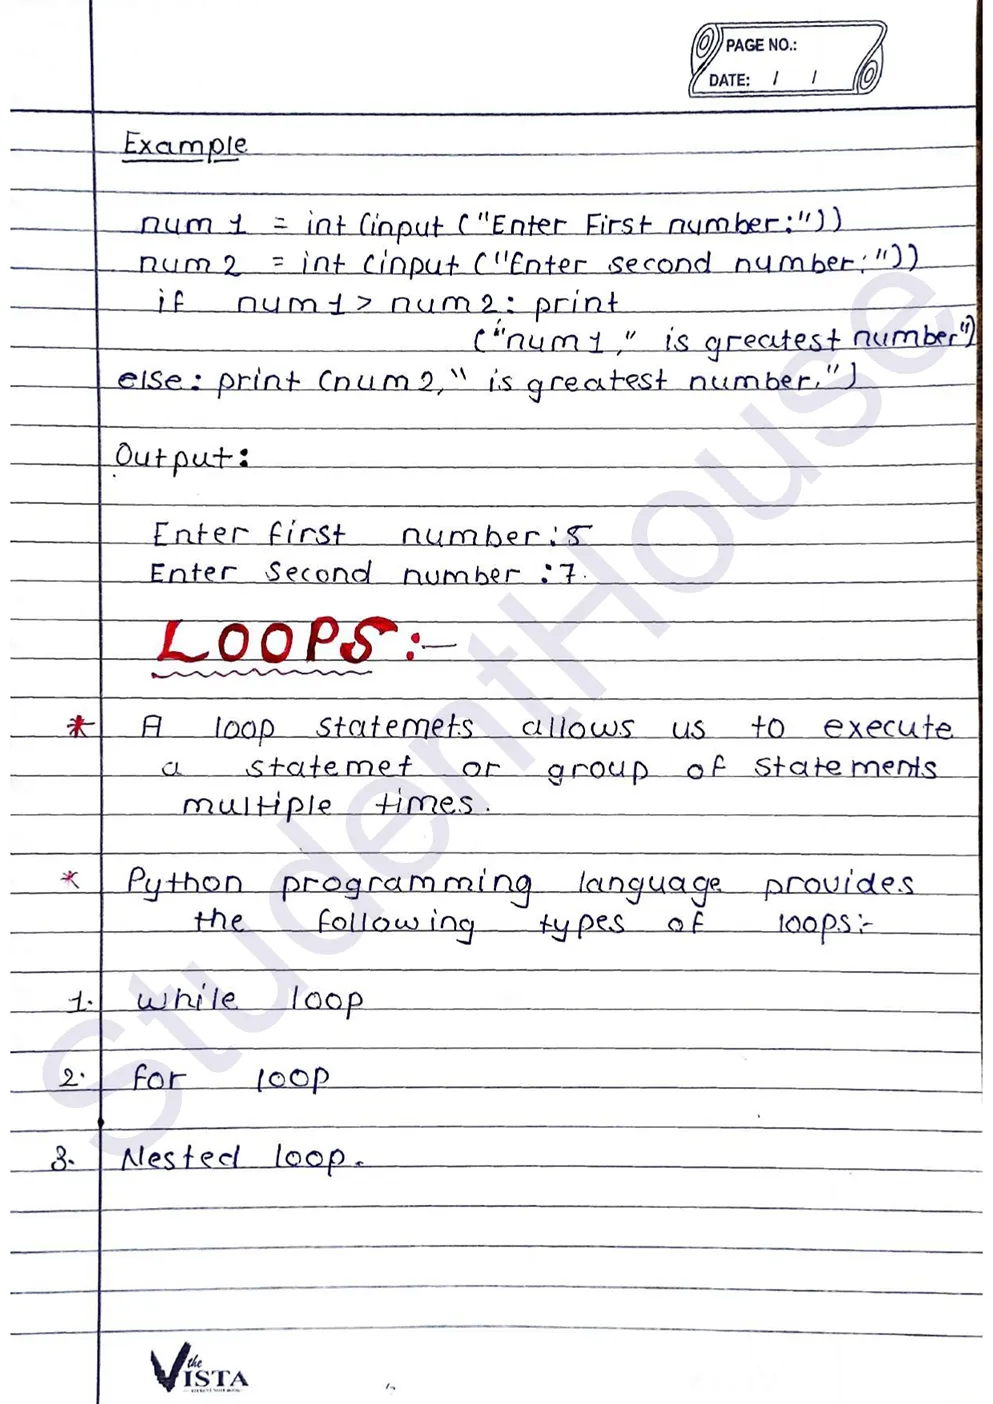 PAGE NO.:
DATE: / /
Example
num 1 = int (input ("Enter First number:"))
num 2 = int (input ("Enter second number:"))
if num 1 > num 2: print
("num 1," is greatest number")
else: print (num 2," is greatest number.")
Output:
Enter first number:5
Enter Second number :7.
LOOPS:-
* A loop statemets allows us to execute
a statemet or group of statements
multiple times.
* Python programming language provides
the following types of loops:-
1. while loop
2. for loop
3. Nested loop.
StudentHouse
the
VISTA